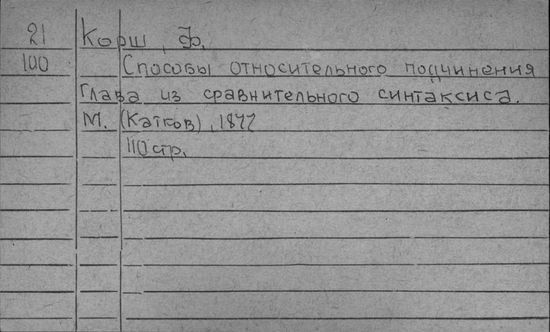 21 Корш, Ф.
100 Способы относительного подчинения
Глава из сравнительного синтаксиса.
М. (Катков), 1877
110 стр.